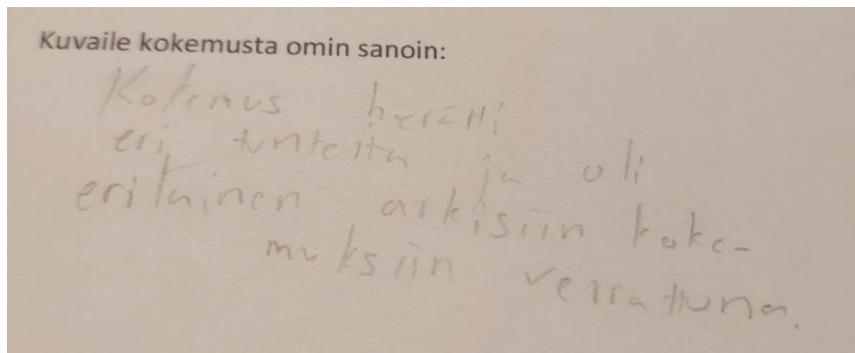 Kuvaile kokemusta omin sanoin:
Kokemus herätti
eri tunteita ja oli
erilainen arkisiin koke-
muksiin verrattuna.